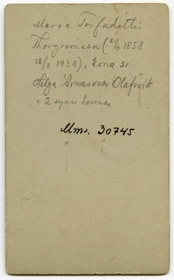 María Torfadóttir
Thorgrimsen (21/5 1858
18/3 1939), kona sr.
Helga Árnasonar Ólafsvík
+ 2 synir hennar
Mms. 30745
" "